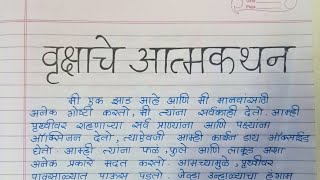 वृक्षाचे आत्मकथन
मी एक झाड आहे आणि मी मानवासाठी
अनेक गोष्टी करतो. मी त्यांना सर्वकाही देतो. आम्ही
पृथ्वीवर राहणाऱ्या सर्व प्राण्यांना आणि पक्ष्यांना
ऑक्सिजन देतो, त्याऐवजी आम्ही कार्बन डाय ऑक्साईड
घेतो. आम्ही त्यांना फळ, फुले आणि लाकूड अशा
अनेक प्रकारे मदत करतो. आमच्यामुळे, पृथ्वीवर
पावसाळ्यात पाऊस पडतो. जेव्हा उन्हाळ्याचा हंगाम